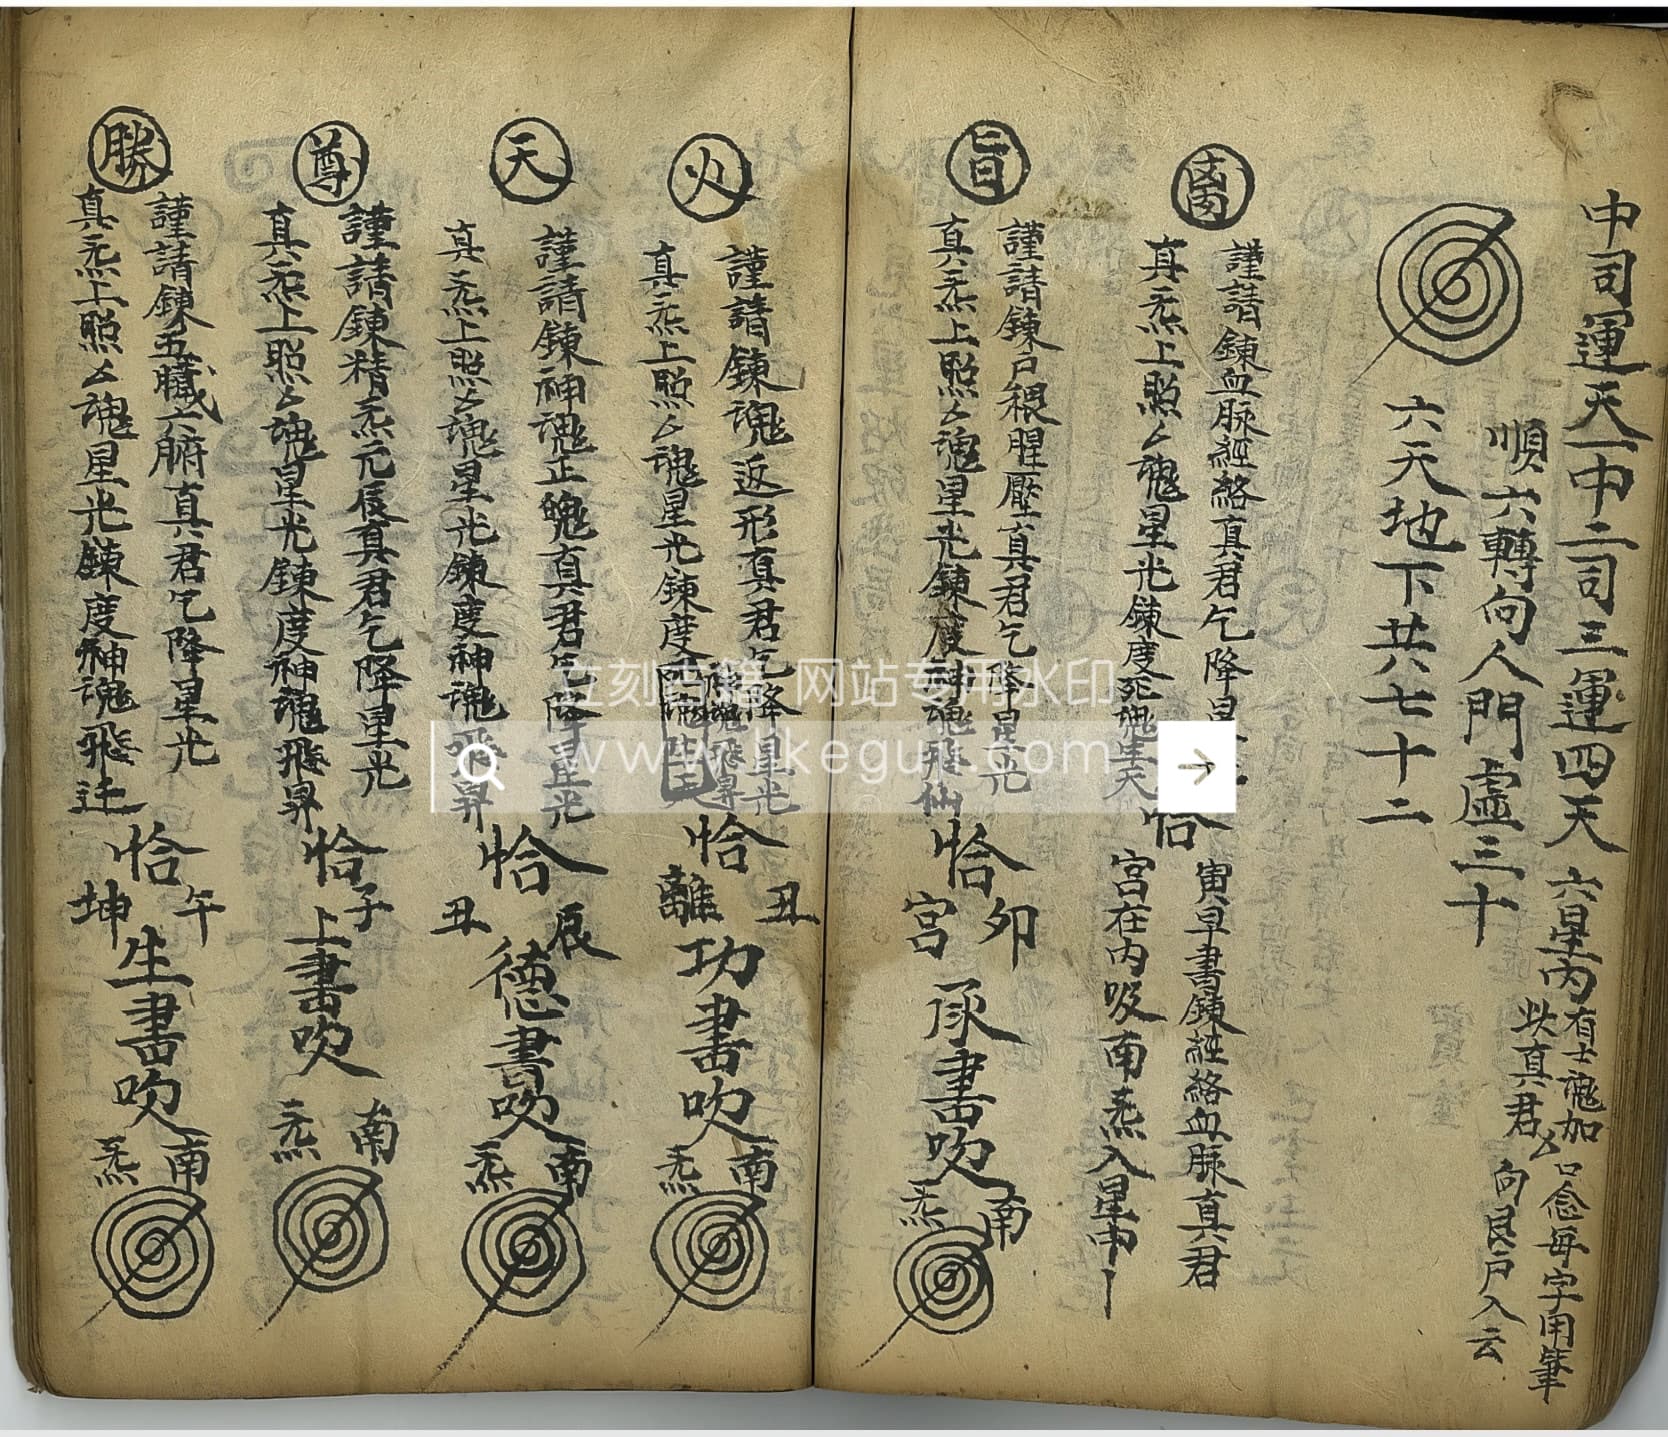 中司運天一中二司三運四天
六星内有士魂加
此真君〻
口念每字用筆
向艮戸入云
順六轉向人門虛三十
六天地下共七十二
謹請鍊血脉經絡真君乞降星
真炁上照〻魂星光鍊度死魂生天
恰
寅早書鍊經絡血脉真君
宮在内吸南炁入星中
旨
謹請鍊尸穢腥壓真君乞降星光
真炁上照〻魂星光鍊度神魂飛仙
恰
卯
宮
承書吹
南
炁
火
謹請鍊魂返形真君乞降星光
真炁上照〻魂星光鍊度
陰魂飛昇
恰
丑
離
功書吹
南
炁
天
謹請鍊神魂正魄真君乞降星光
真炁上照〻魂星光鍊度神魂飛昇
恰
辰
丑
德書吹
南
炁
尊
謹請鍊精炁元辰真君乞降星光
真炁上照〻魂星光鍊度神魂飛昇
恰
子
上書吹
南
炁
勝
謹請鍊五臟六腑真君乞降星光
真炁上照〻魂星光鍊度神魂飛迁
恰
午
坤
生書吹
南
炁
立刻古籍 网站专用水印